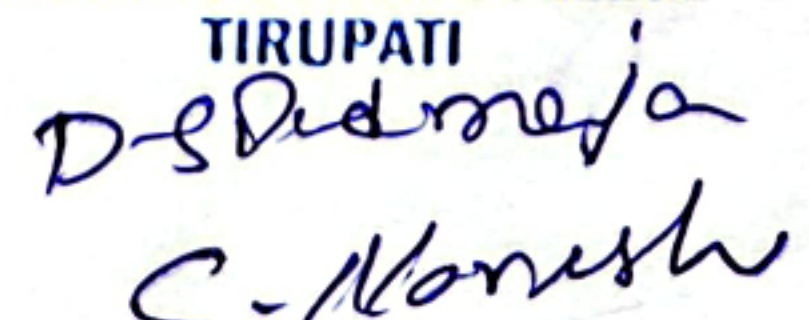 TIRUPATI
D-S Padmaja
C. Monesh